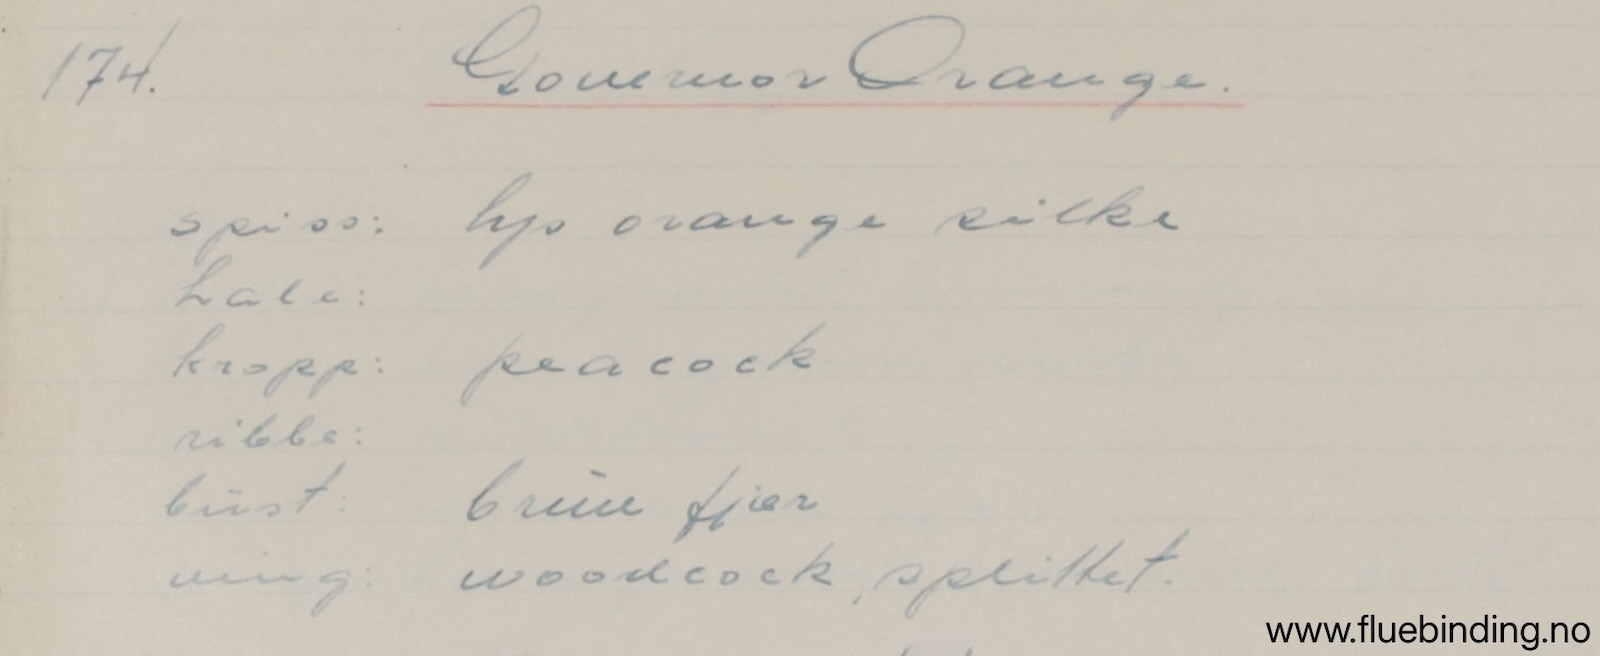 174. Governor Orange.
spiss: lys orange silke
hale:
kropp: peacock
ribbe:
būst: brūn fjær
ving: woodcock, splittet.
www.fluebinding.no